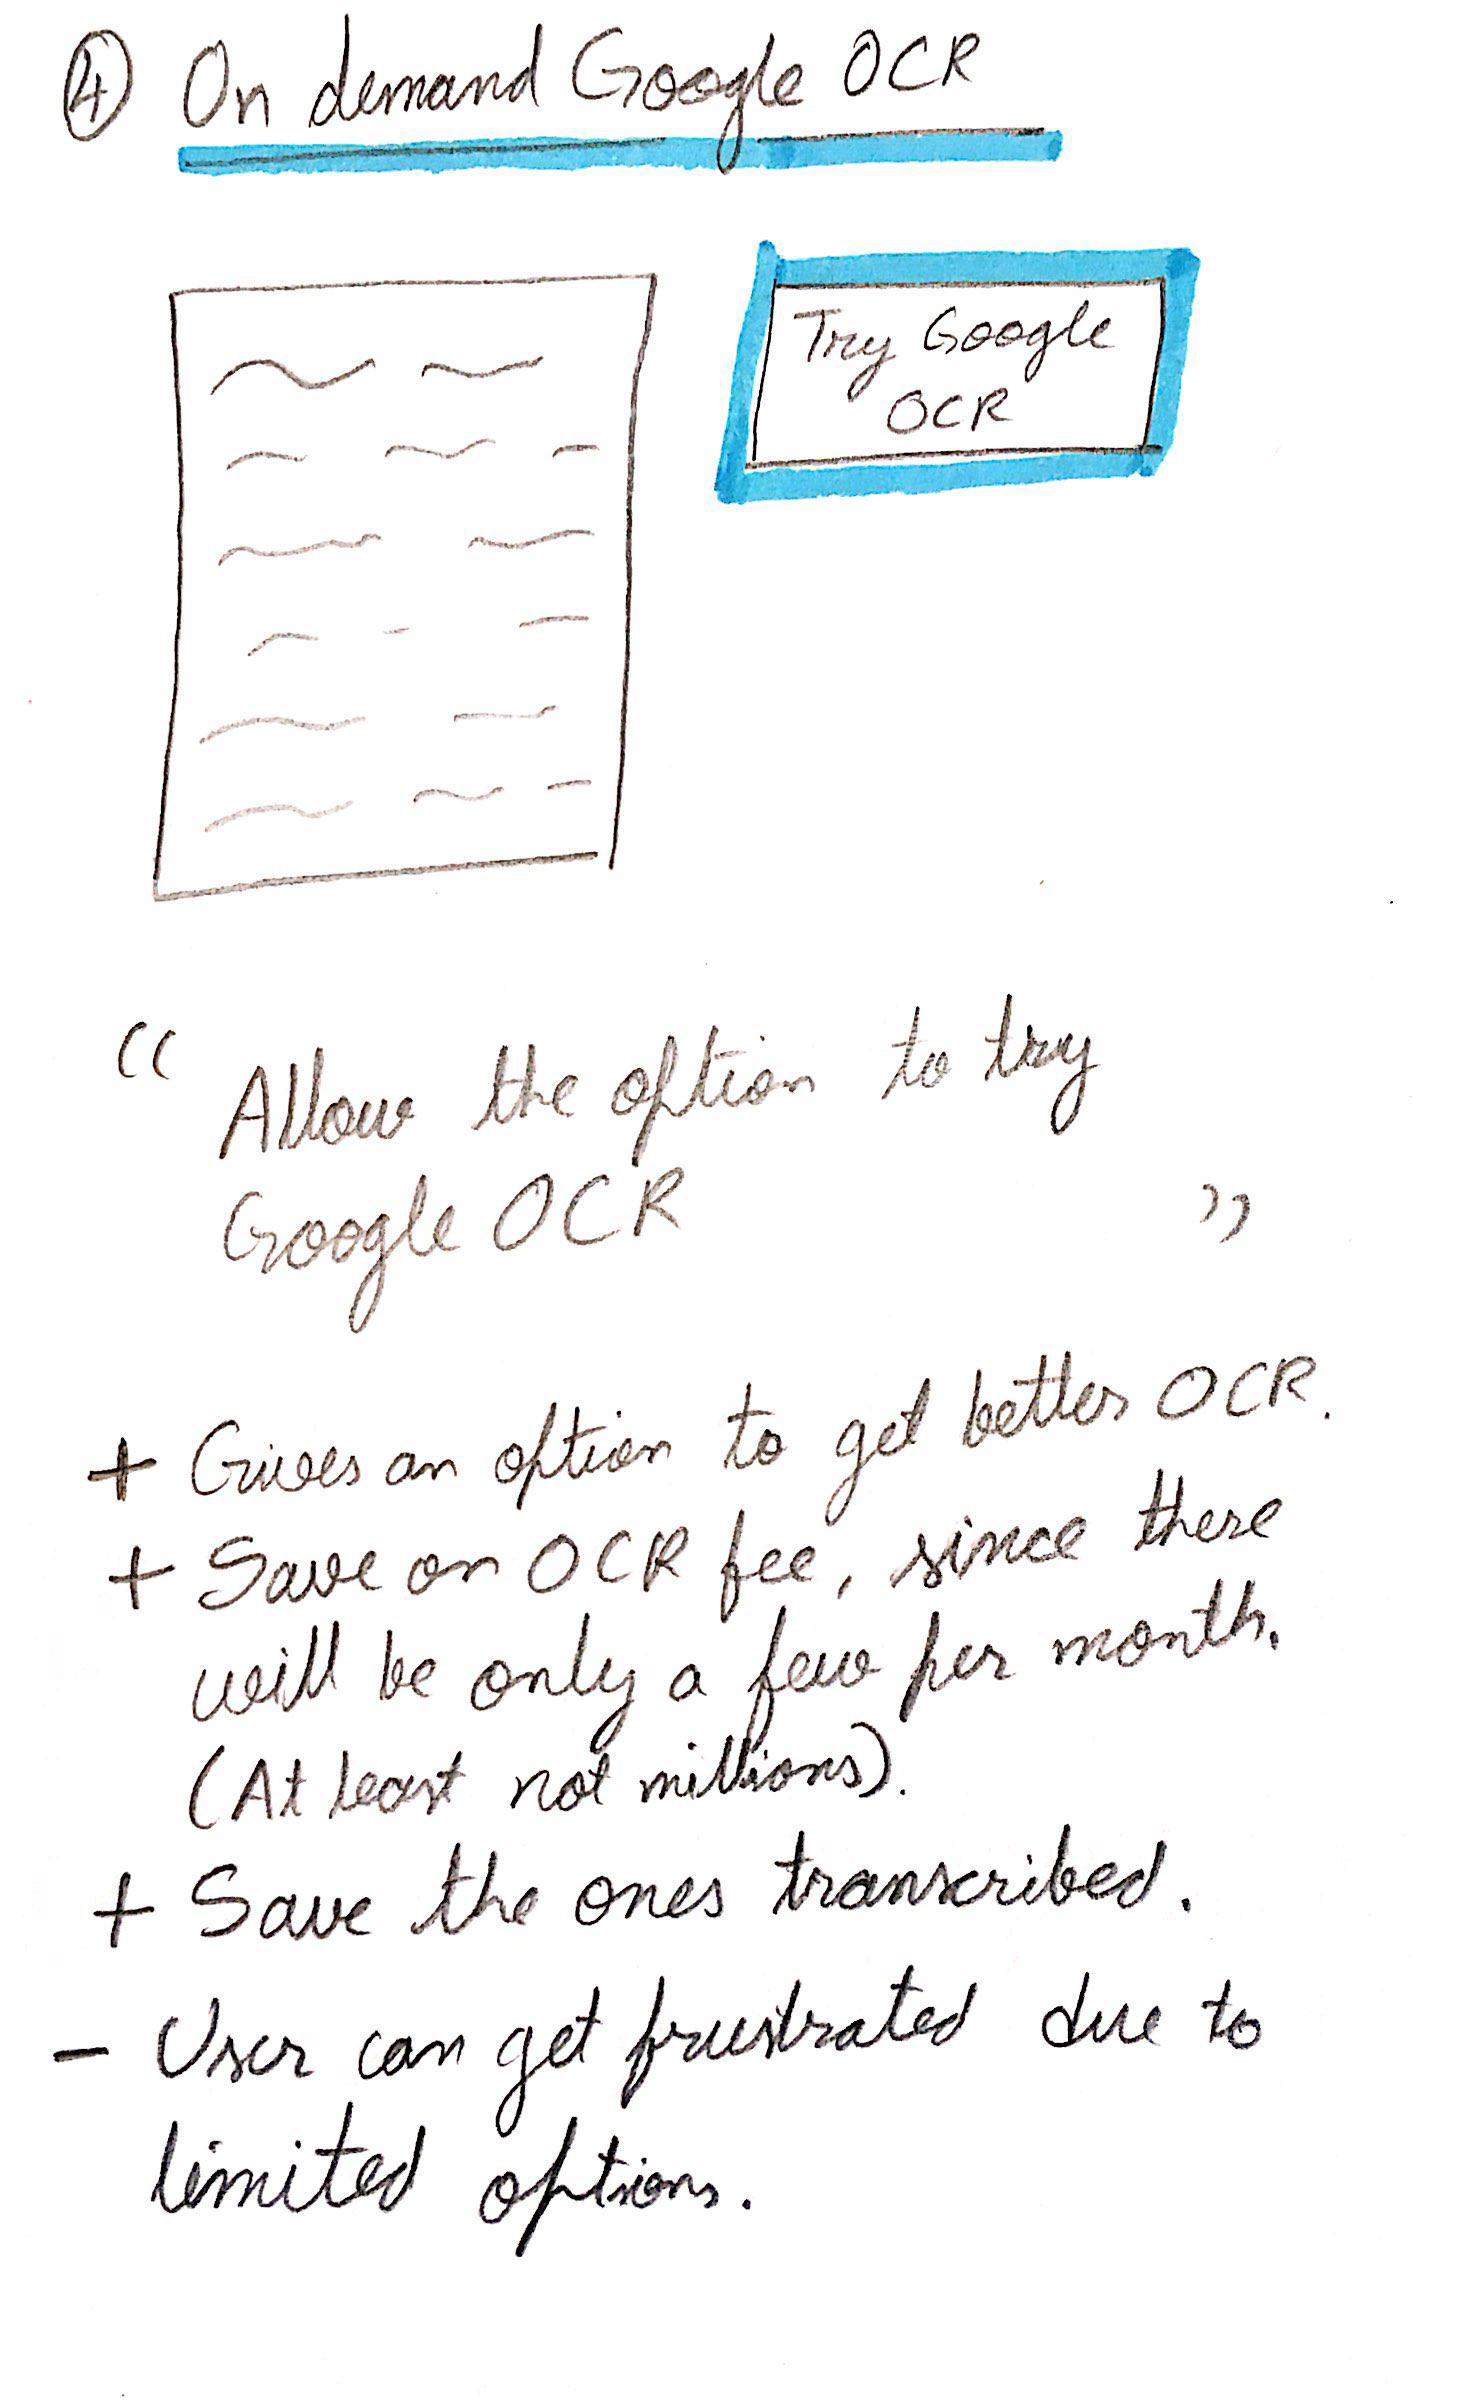 4 On demand Google OCR
Try Google
OCR
“ Allow the option to try
Google OCR ”
+ Gives an option to get better OCR.
+ Save on OCR fee, since there
will be only a few per month.
(At least not millions).
+ Save the ones transcribed.
- User can get frustrated due to
limited options.